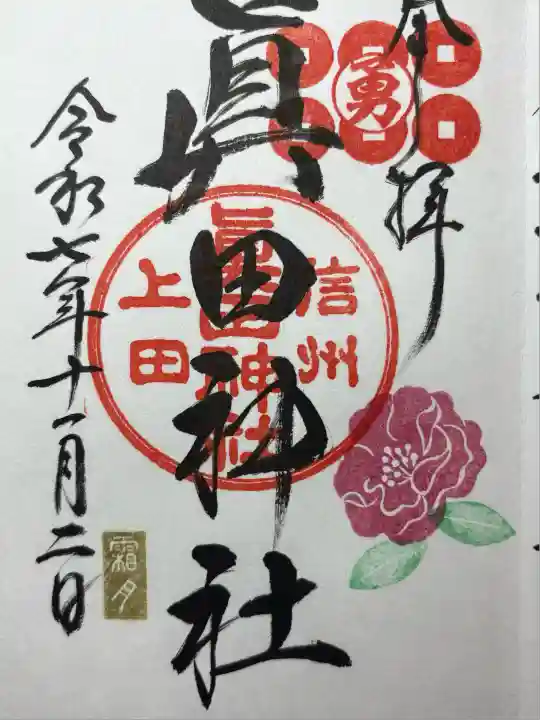 奉拝
勇
眞田神社
信州
眞田神社
上田
令和七年十一月二日
霜月